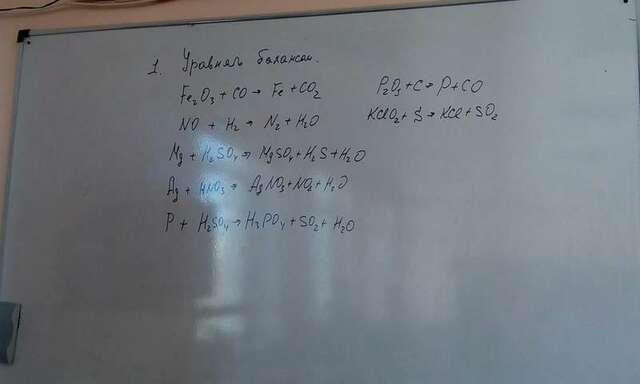 1. Уравнять балансом.
Fe₂O₃ + CO → Fe + CO₂
NO + H₂ → N₂ + H₂O
Mg + H₂SO₄ → MgSO₄ + H₂S + H₂O
Ag + HNO₃ → AgNO₃ + NO₂ + H₂O
P + H₂SO₄ → H₃PO₄ + SO₂ + H₂O
P₂O₅ + C → P + CO
KClO₂ + S → KCl + SO₂